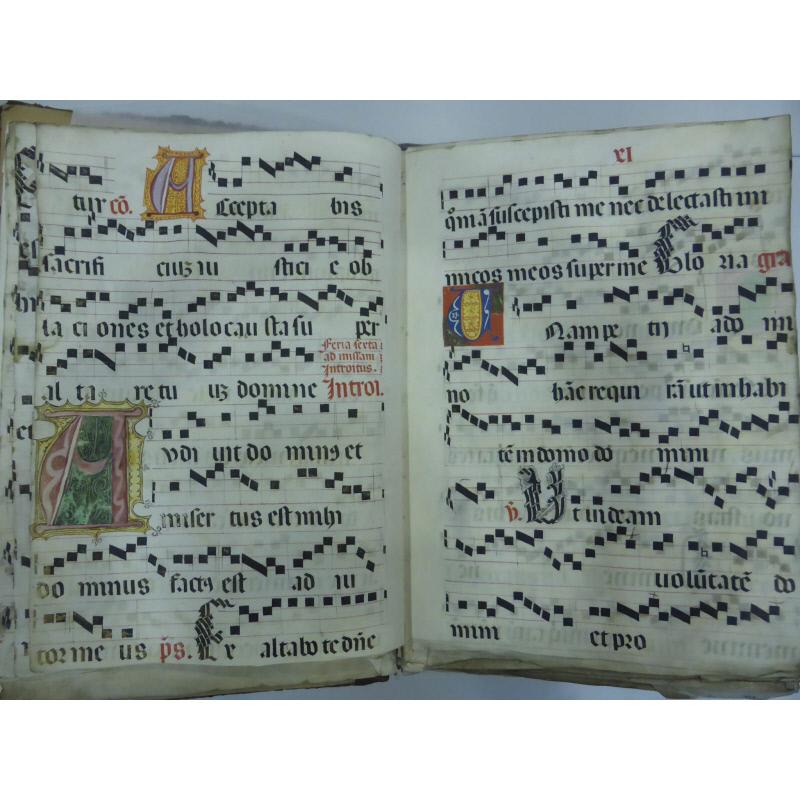 tur cō. Accepta bis
sacrifi ciuȝ iu stici e ob
la ci ones et holocau sta su per
Feria sexta
ad missam
Introitus.
al ta re tu uȝ domine Introi.
Audi uit do minꝯ et
miser tus est mihi
do minus factꝯ est ad iu
tor me us ps. Ex altabo te dn̄e
XI
qm̄ā suscepisti me nec delectasti ini
micos meos super me Glo ria gra
Unam pe tij ado mi
no hāc requi rā ut inhabi
tē in domo do mini
v. Ut uideam
uolūtatē do
mini et pro